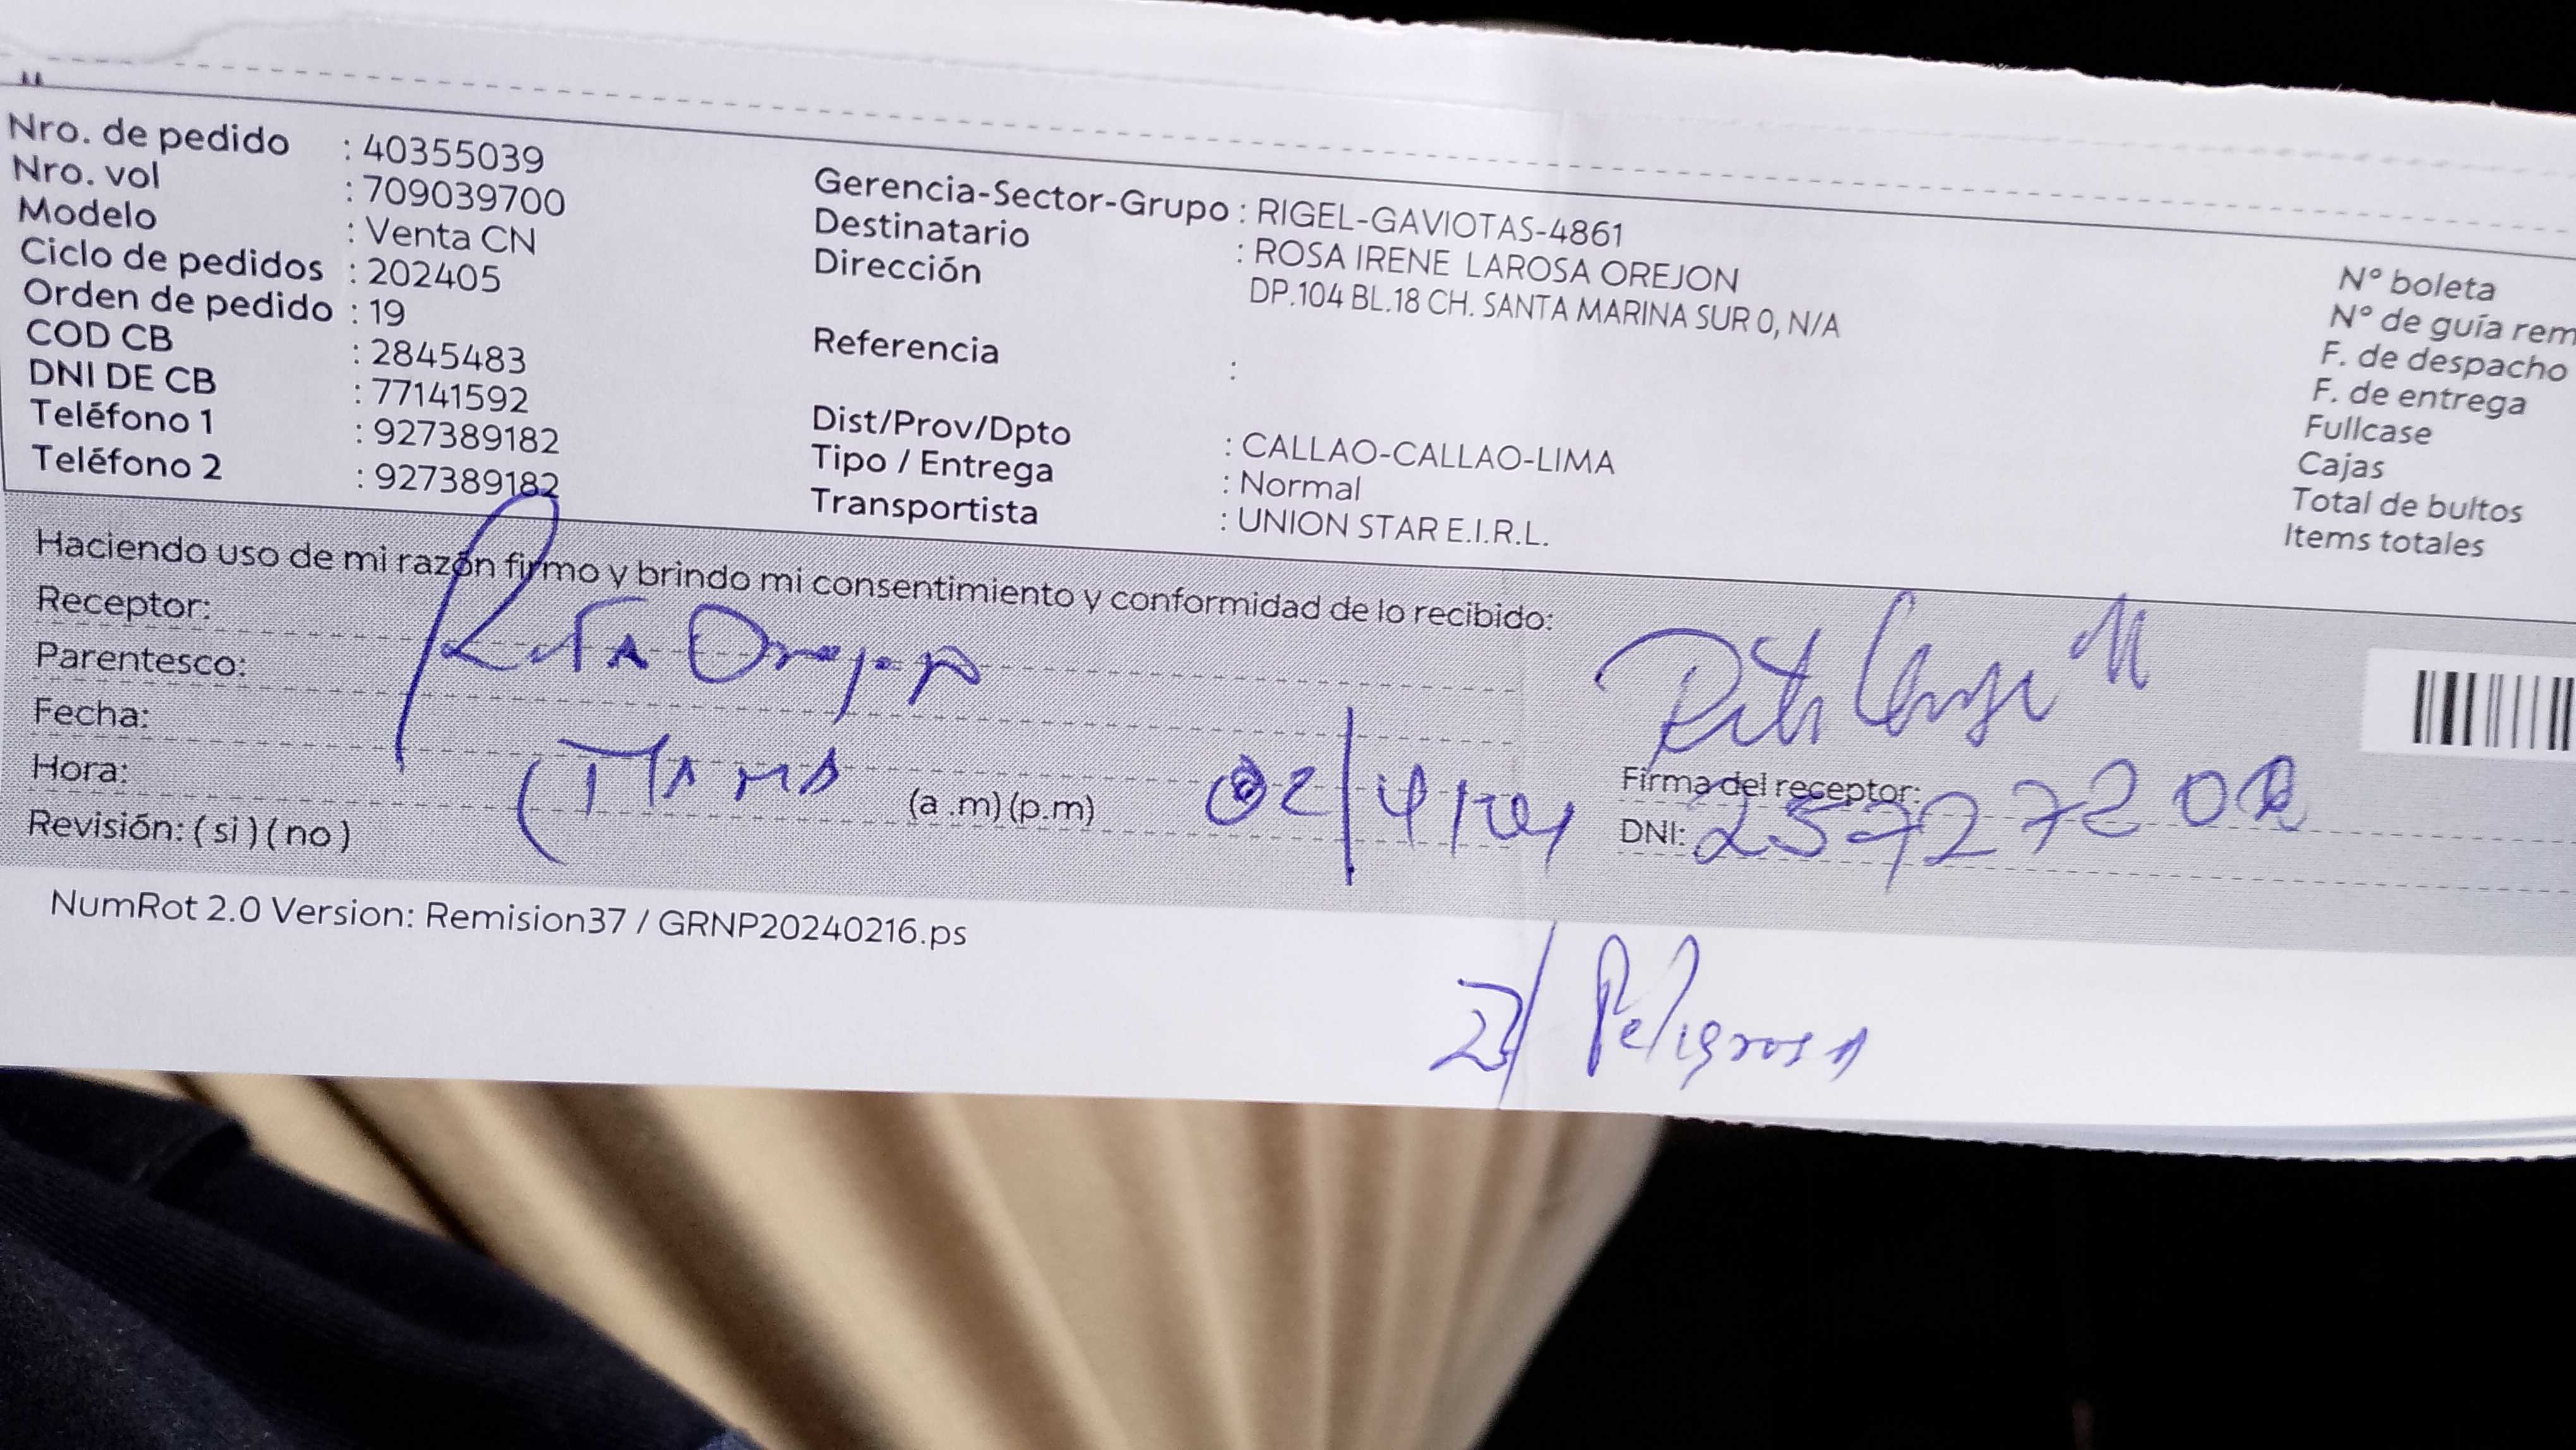 Nro. de pedido : 40355039
Nro. vol : 709039700
Modelo : Venta CN
Ciclo de pedidos : 202405
Orden de pedido : 19
COD CB : 2845483
DNI DE CB : 77141592
Teléfono 1 : 927389182
Teléfono 2 : 927389182
Gerencia-Sector-Grupo : RIGEL-GAVIOTAS-4861
Destinatario : ROSA IRENE LAROSA OREJON
Dirección DP.104 BL.18 CH. SANTA MARINA SUR 0, N/A
Referencia :
Dist/Prov/Dpto : CALLAO-CALLAO-LIMA
Tipo / Entrega : Normal
Transportista : UNION STAR E.I.R.L.
N° boleta
N° de guía rem
F. de despacho
F. de entrega
Fullcase
Cajas
Total de bultos
Items totales
Haciendo uso de mi razón firmo y brindo mi consentimiento y conformidad de lo recibido:
Receptor:
Parentesco:
Fecha:
Hora: (a .m) (p.m)
Revisión: ( si ) ( no )
Firma del receptor:
DNI:
NumRot 2.0 Version: Remision37 / GRNP20240216.ps
Peligrosa